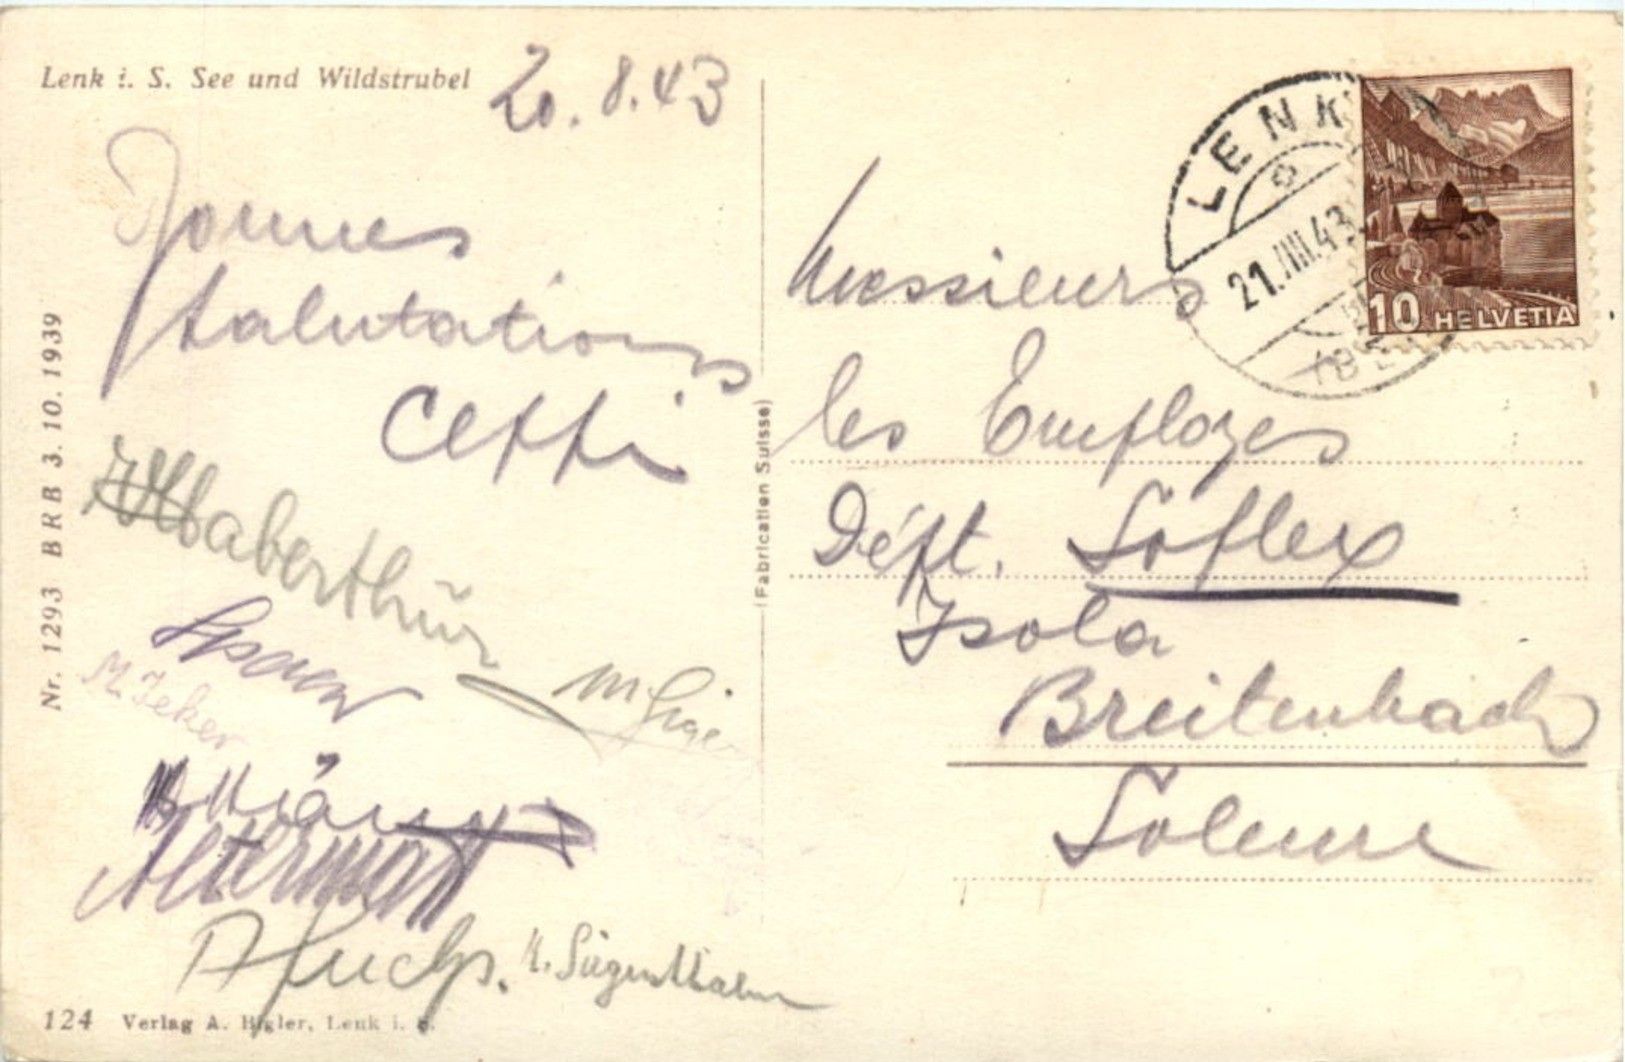 Lenk i. S. See und Wildstrubel
20.8.43
Bonnes
salutations
Ceppi
Haberthür
M. Jeker
Altermatt
A Fuchs.
Nr. 1293 B R B 3. 10. 1939
124 Verlag A. Bigler, Lenk i. S.
(Fabrication Suisse)
LENK
21.VIII.43
10 HELVETIA
Messieurs
les Employes
Dépt. Soflex
Isola
Breitenbach
Soleure